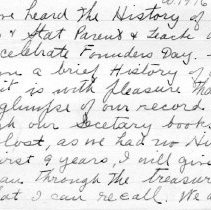 1916
we heard The History of
& Stat Parent & Teach
celebrate Founders Day.
a brief History of
it is with pleasure Tha
glimpse of our record
gh our Secetary book
lost, as we had no Hi
irst 9 years, I will give
Through the treasur
at I can recall. We